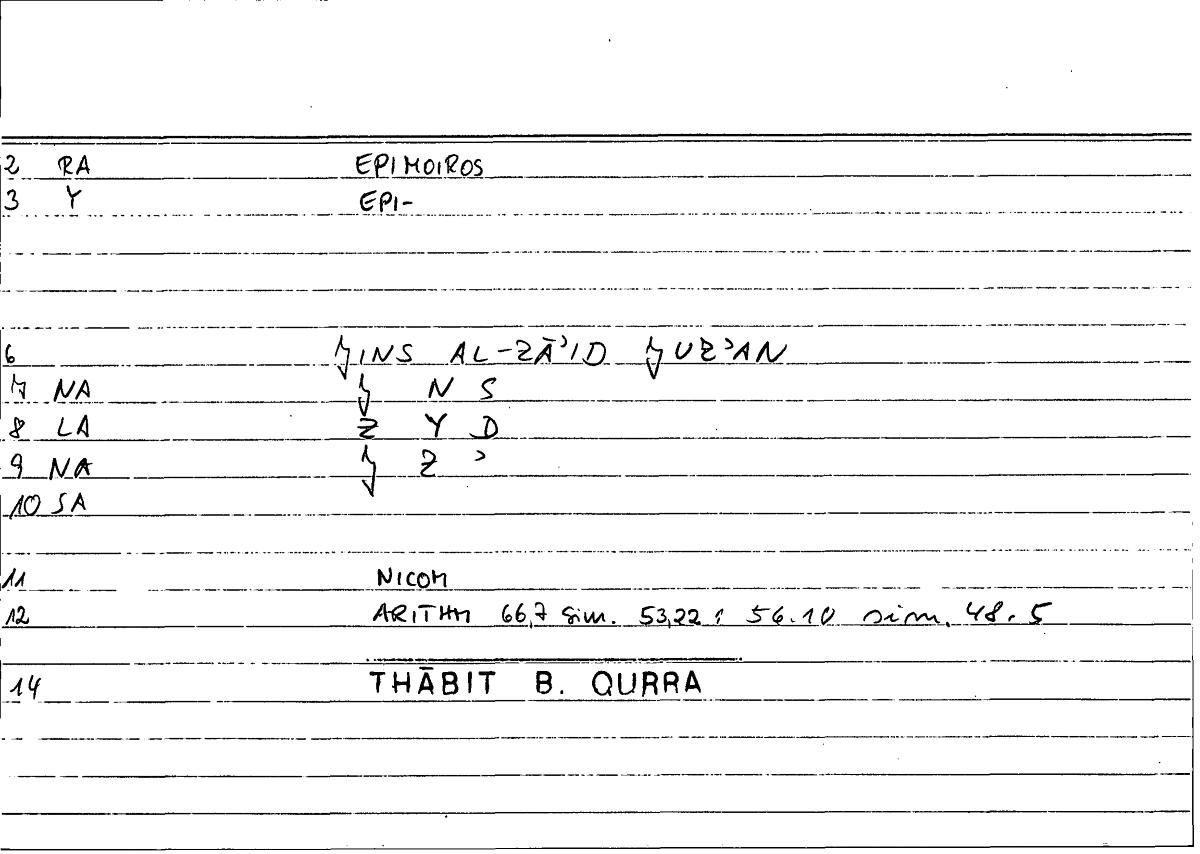 2 RA EPIMOIROS
3 Y EPI-
6 ǦINS AL-ZĀʾID ǦUZʾAN
7 NA Ǧ N S
8 LA Z Y D
9 NA Ǧ Z ʾ
10 SA
11 NICOM
12 ARITHM 66,7 sim. 53,22 : 56.10 sim. 48.5
14 THĀBIT B. QURRA